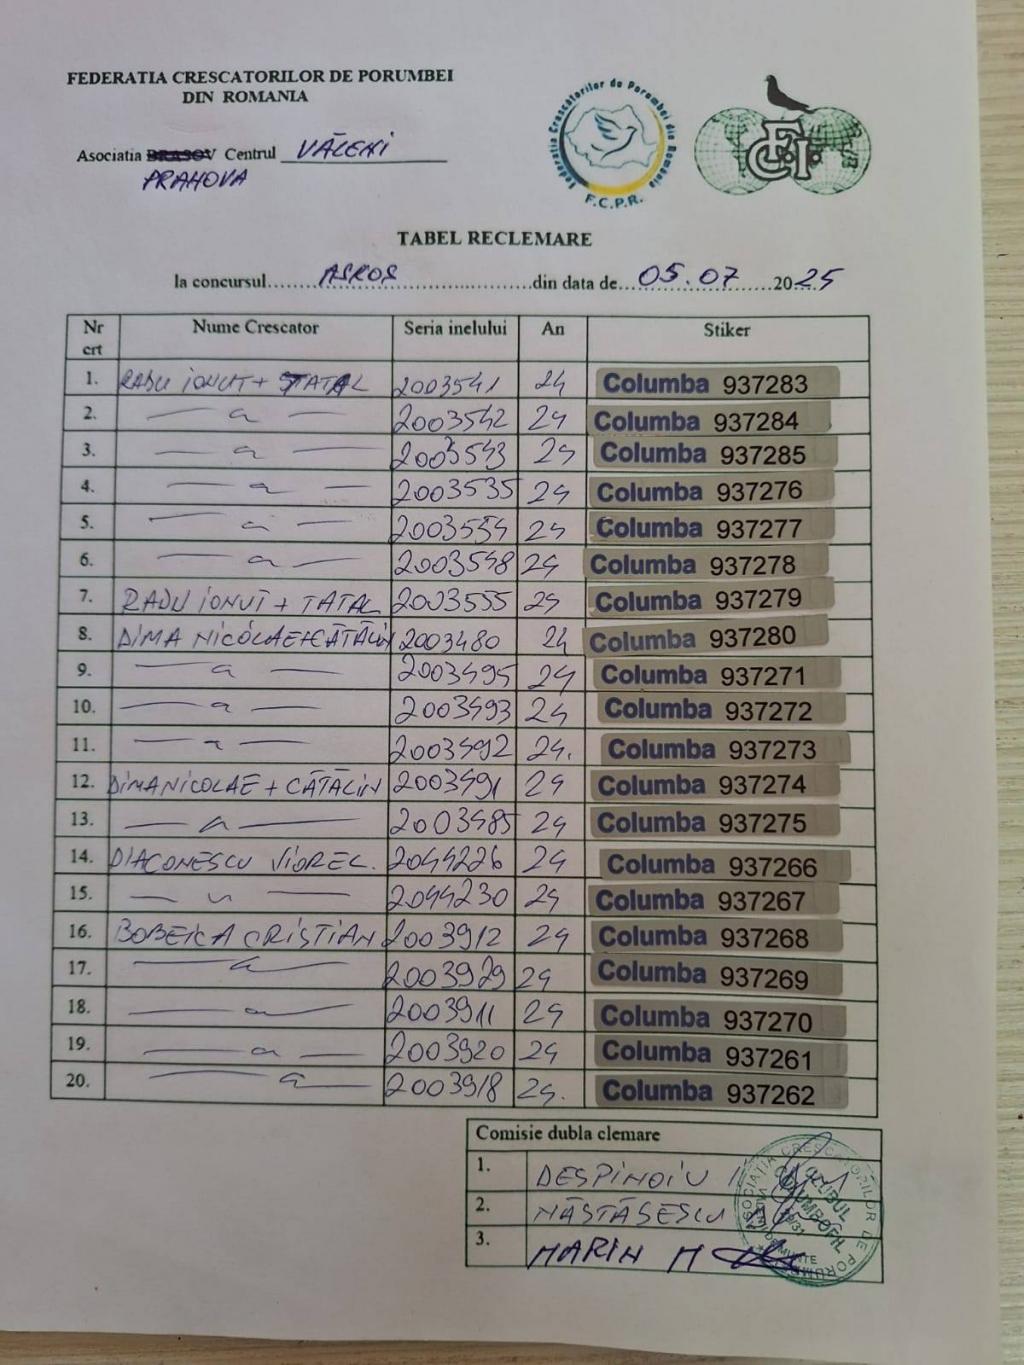 FEDERATIA CRESCATORILOR DE PORUMBEI
DIN ROMANIA
Federatia Crescătorilor de Porumbei din Romania
F.C.P.R.
F.C.I.
Asociatia BRASOV Centrul VĂLENI
PRAHOVA
TABEL RECLEMARE
la concursul ASROS din data de 05.07 2025
Nr crt Nume Crescator Seria inelului An Stiker
1. RADU IONUT + TATAL 2003541 24 Columba 937283
2. — a — 2003542 24 Columba 937284
3. — a — 2003543 24 Columba 937285
4. — a — 2003535 24 Columba 937276
5. — a — 2003554 24 Columba 937277
6. — a — 2003548 24 Columba 937278
7. RADU IONUT + TATAL 2003555 24 Columba 937279
8. DIMA NICOLAE+CĂTĂLIN 2003480 24 Columba 937280
9. — a — 2003495 24 Columba 937271
10. — a — 2003493 24 Columba 937272
11. — a — 2003492 24. Columba 937273
12. DIMA NICOLAE + CĂTĂLIN 2003491 24 Columba 937274
13. — a — 2003485 24 Columba 937275
14. DIACONESCU VIOREL. 2044226 24 Columba 937266
15. — u — 2044230 24 Columba 937267
16. BOBEICA CRISTIAN 2003912 24 Columba 937268
17. — a — 2003929 24 Columba 937269
18. — a — 2003911 24 Columba 937270
19. — a — 2003920 24 Columba 937261
20. — a 2003918 24. Columba 937262
Comisie dubla clemare
1. DESPINOIU
2. NĂSTĂSESCU
3. MARIN M
ASOCIATIA CRESCATORILOR DE PORUMBEI
CLUBUL
COLUMBOFIL